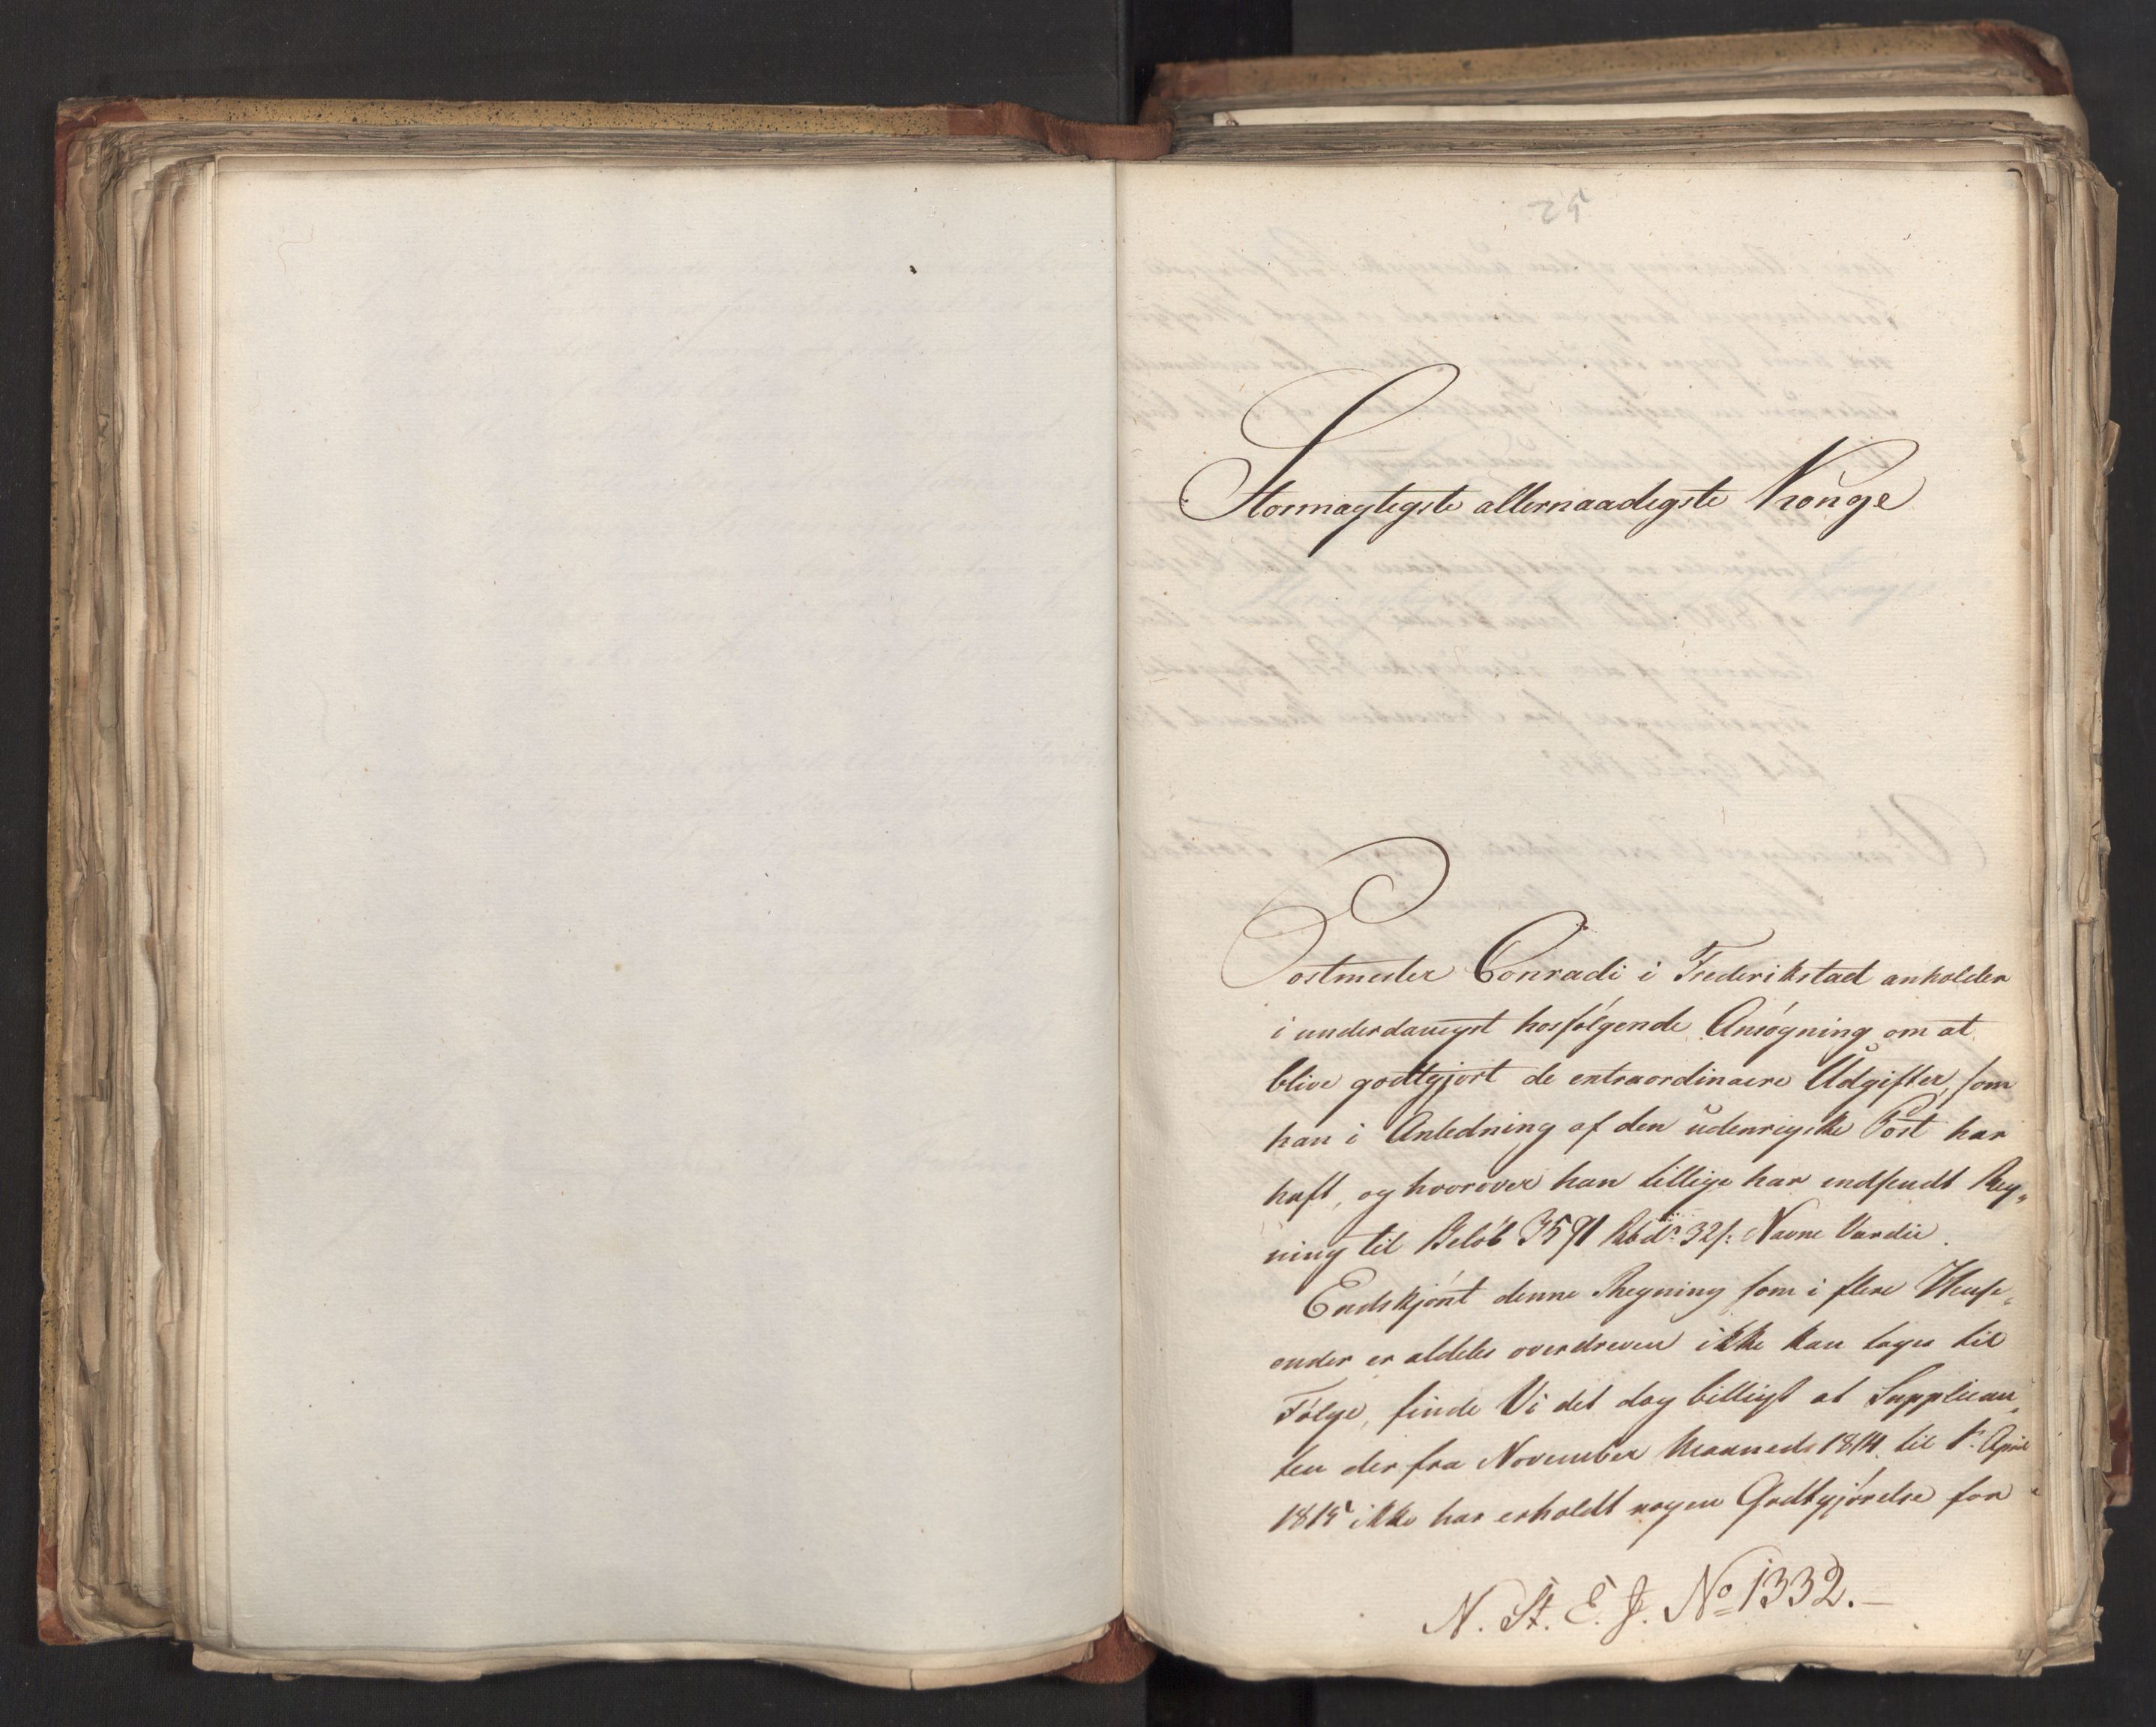 25
Stormægtigste allernaadigste Konge
Postmester Conradi i Frederikstad anholder
i underdanigst hosfølgende Ansøgning om at
blive godtgjort de extraordinaire Udgifter, som
han i Anledning af den udenrigske Post har
haft, og hvorover han tillige har indsendt Reg„
ning til Beløb 3591 Rbdr 32 s: Navne Værdie.
Endskjønt denne Regning som i flere Hense„
ender er aldeles overdreven ikke kan tages til
Følge, finde Vi det dog billigt at Supplican„
ten der fra November Maaned 1814 til 1ste April
1815 ikke har erholdt nogen Godtgjørelse for
N. St. E. J. No 1332.